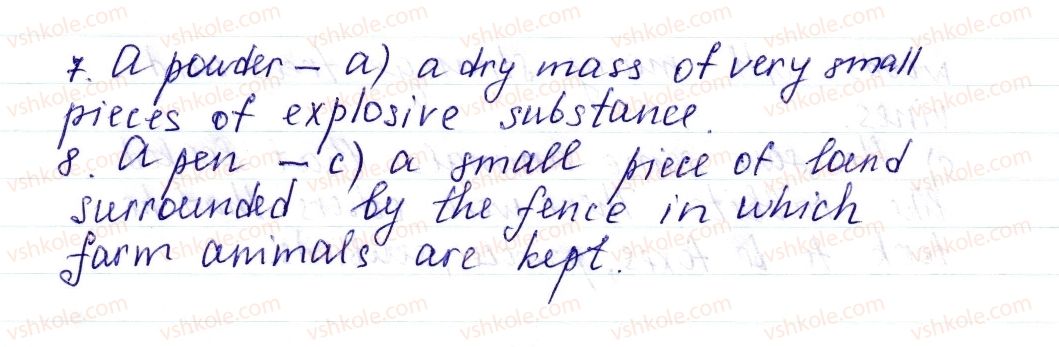 7. A powder – a) a dry mass of very small
pieces of explosive substance.
8. A pen – c) a small piece of land
surrounded by the fence in which
farm animals are kept.
vshkole.com